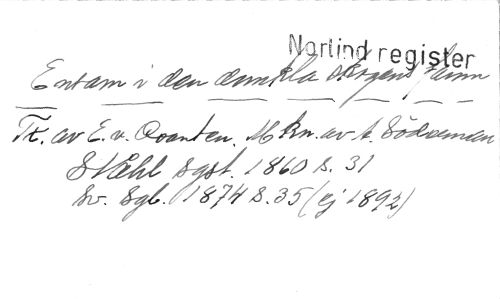 Norlind register
Ensam i den dunkla skogens famn
Tk. av E. v. Qvanten. Mkn. av A. Söderman
Ståhl sgst. 1860 s. 31
Sv. Sgb. 1874 s. 35 (ej 1892)